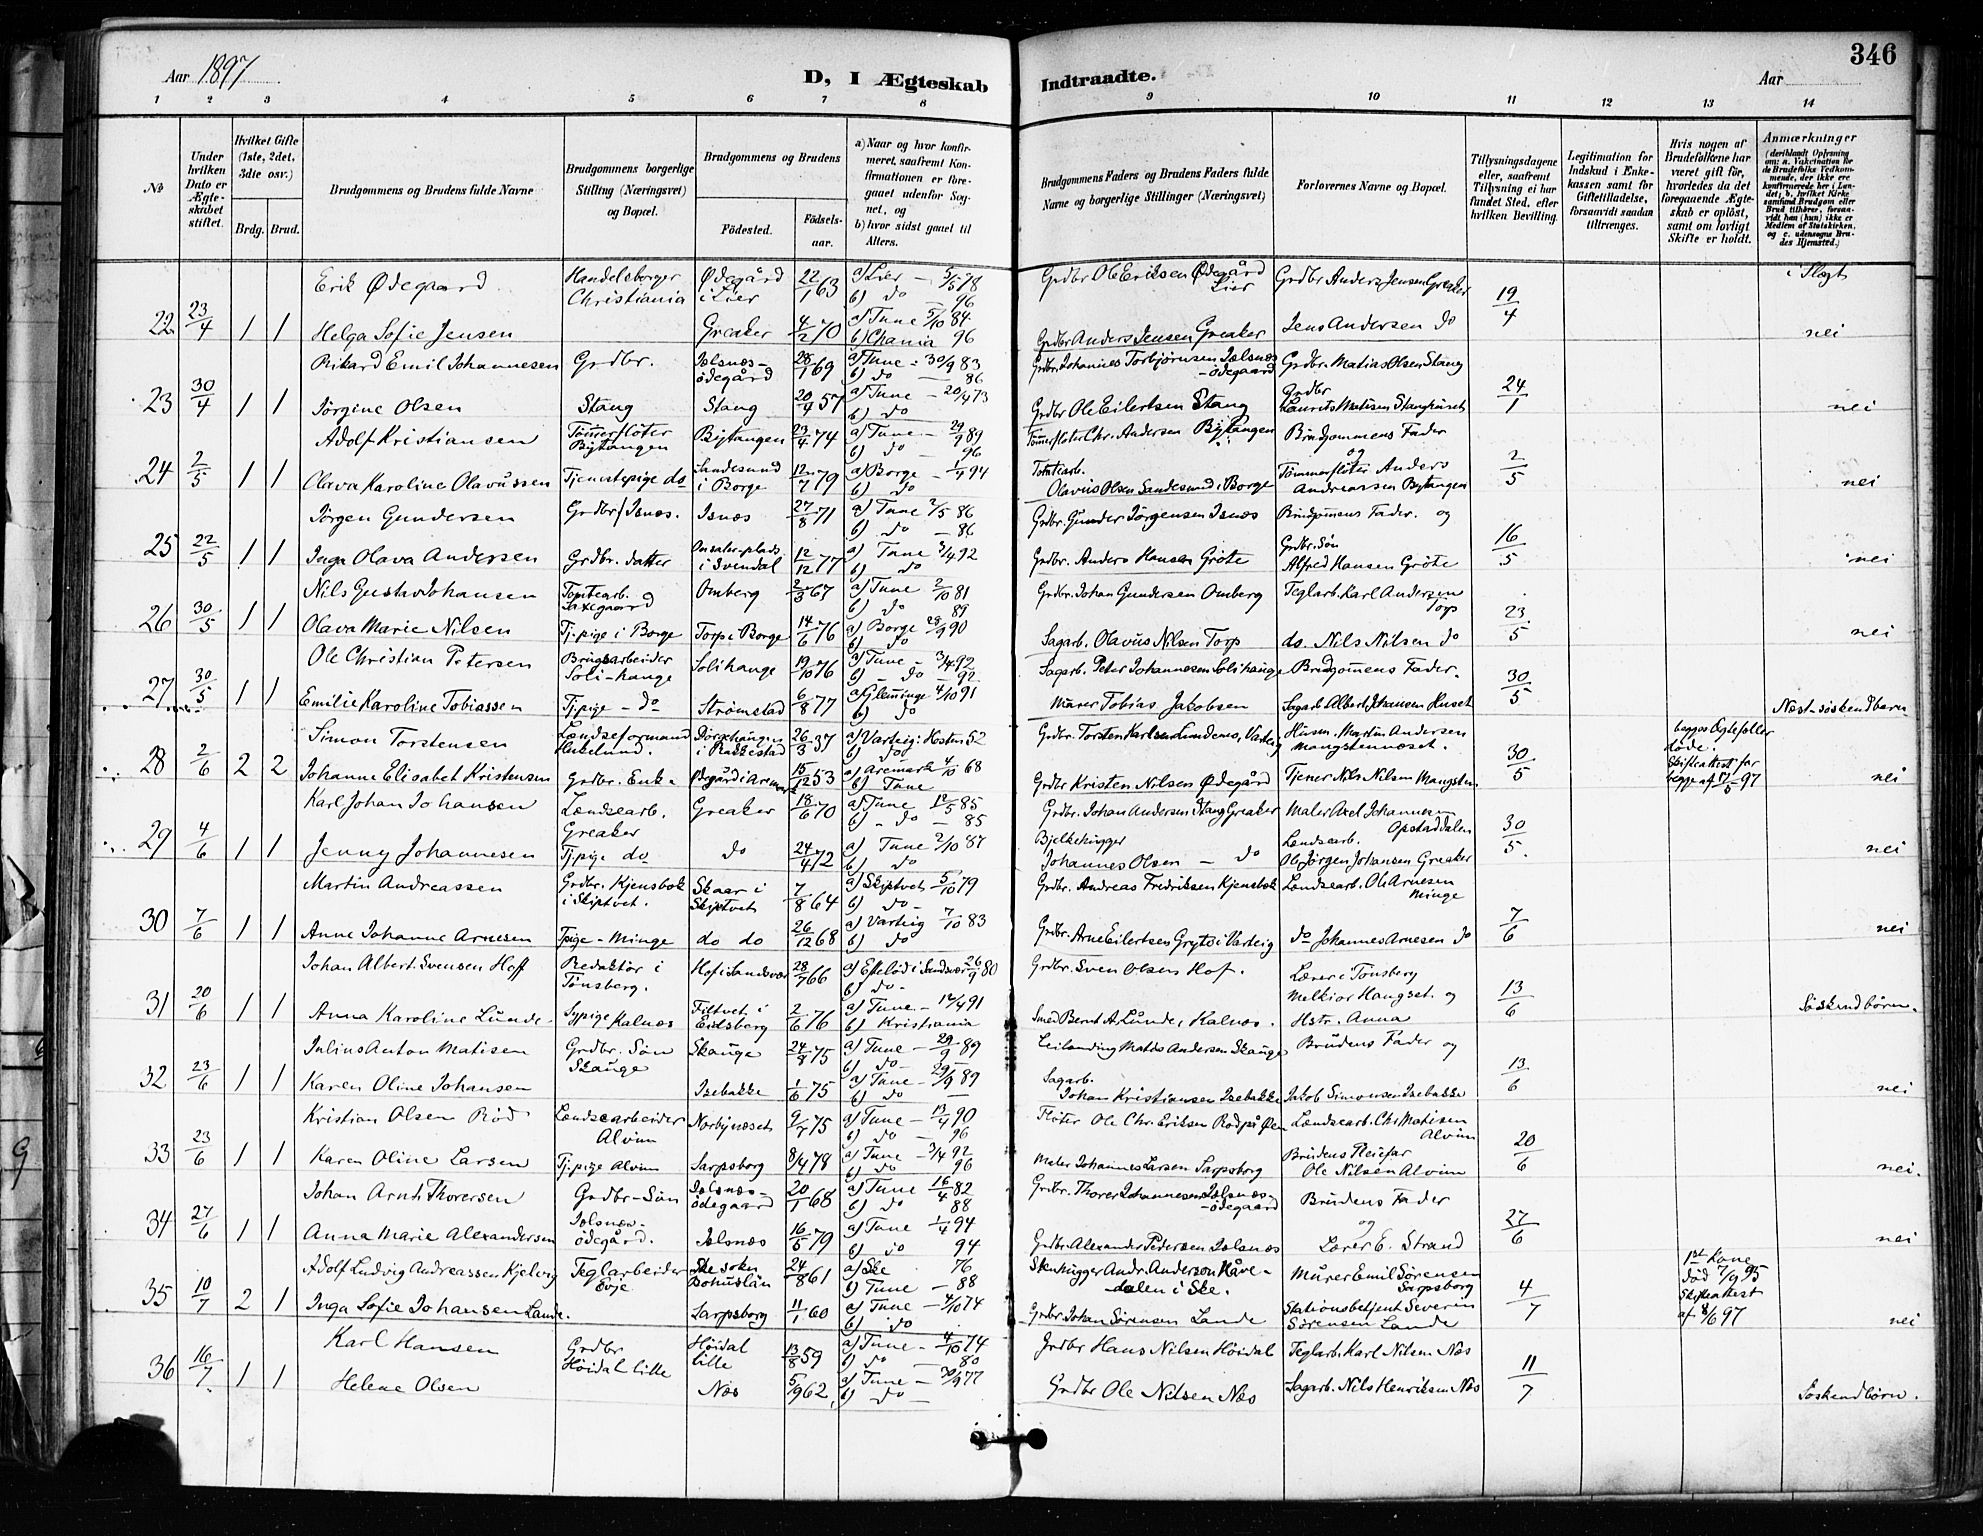 346
Aar 1897
D, I Ægteskab Indtraadte.
Aar
1 2 3 4 5 6 7 8 9 10 11 12 13 14
No
Under hvilken Dato er Ægteskabet stiftet.
Hvilket Gifte (1ste, 2det, 3die osv.)
Brdg. Brud.
Brudgommens og Brudens fulde Navne
Brudgommens borgerlige Stilling (Næringsvei) og Bopæl.
Brudgommens og Brudens
Fødested.
Fødselsaar.
a) Naar og hvor konfirmeret, saafremt Konfirmationen er foregaaet udenfor Sognet, og
b) hvor sidst gaaet til Alters.
Brudgommens Faders og Brudens Faders fulde Navne og borgerlige Stillinger (Næringsvei)
Forlovernes Navne og Bopæl.
Tillysningsdagene eller, saafremt Tillysning ei har fundet Sted, efter hvilken Bevilling.
Legitimation for Indskud i Enkekassen samt for Giftetilladelse, forsaavidt saadan tiltrænges.
Hvis nogen af Brudefolkene har været gift før, hvorledes da det foregaaende Ægteskab er opløst, samt om lovligt Skifte er holdt.
Anmærkninger
Erik Ødegaard Handelsborger Christiania Ødegård i Lier 22/1 63 a) Lier – 5/5 78 b) do – 96 Grdbr Ole Eriksen Ødegård Lier Grdbr Anders Jensen Greaker i Slegt
22 23/4 1 1 Helga Sofie Jensen Greaker 4/2 70 a) Tune 5/10 84 b) Chania 96 Grdbr Anders Jensen Greaker Jens Andersen do 19/4 nei
Rikard Emil Johannesen Grdbr. Iolsnæs-ødegård 28/1 69 a) Tune - 30/9 83 b) do – 86 Grdbr. Johannes Torbjørnsen Iolsnæs-ødegaard Grdbr. Matias Olsen Stang
23 30/4 1 1 Jørgine Olsen Stang Stang 20/4 57 a) Tune – 20/4 73 b) do Grdbr Ole Eilertsen Stang Grdbr Laurits Matisen 24/1 nei
Adolf Kristiansen Tømmerfløter Bytangen Bytangen 23/4 74 a) Tune – 29/9 89 b) do – 96 Tømmerfløter Chr. Andersen Bytangen Brudgommens Fader og
24 2/5 1 1 Olava Karoline Olavussen Tjenestepige do Sandesund i Borge 12/7 79 a) Borge – 1/4 94 b) do Tomtearb. Olavus Olsen Sandesund i Borge Tømmerfløter Anders Andreassen Bytangen 2/5 nei
Jørgen Gundersen Grdbr/Isnæs. Isnæs 27/8 71 a) Tune 2/5 86 b) do – 86 Grdbr. Gunder Jørgensen Isnæs Brudgommens Fader. og
25 22/5 1 1 Inga Olava Andersen Grdbr. datter i Svendal 12/12 77 a) Tune 3/4 92 b) do Grdbr. Anders Hansen Grøte Grdbr. Søn Alfred Hansen Grøte 16/5 nei
Nils Gustav Johansen Tomtearb. Omberg 2/3 67 a) Tune 2/10 81 b) do 89 Grdbr. Johan Gundersen Omberg Teglarb. Karl Andersen Torp
26 30/5 1 1 Olava Marie Nilsen Tj. pige i Borge Torp i Borge 14/6 76 a) Borge 28/9 90 b) do Sagarb. Olavus Nilsen Torp do. Nils Nilsen do 23/5 nei
Ole Christian Petersen Brugsarbeider Soli-hauge Solihauge 19/10 76 a) Tune – 3/4 92 b) – do – 92 Sagarb. Peter Johannesen Solihauge Brudgommens Fader.
27 30/5 1 1 Emilie Karoline Tobiassen Tj. pige – do Strømstad 6/8 77 a) Glemminge 4/10 91 b) do Murer Tobias Jakobsen Sagarb. Albert Johansen Huset 30/5 Næst-søskendbarn
Simon Torstensen i Rakkestad 26/3 37 a) Varteig: Høsten 52 b) do Grdbr. Torsten Karlsen Lundemo, Varteig Husm. Martin Andersen Mangstennæset. begges Ægtefolk døde.
28 2/6 2 2 Johanne Elisabet Kristensen Grdbr. Enke Ødegård i Aremark 15/12 53 a) Aremark 4/10 68 b) Tune Grdbr Kristen Nilsen Ødegård Tjener Nils Nilsen Mangsten 30/5 Skifteattest for begge af 17/5 97 nei
Karl Johan Johansen Lændsearb. Greaker Greaker 18/6 70 a) Tune 10/5 85 b) – do – 85 Grdbr. Johan Andersen Stang Greaker Maler Axel Johannesen Opstaddalen
29 4/6 1 1 Jenny Johannesen Tj. pige do do 24/4 72 a) Tune 2/10 87 b) do Bjelkehugger Johannes Olsen – do Lændsearb. Ole Jørgen Johansen Greaker 30/5. nei
Martin Andreassen Grdbr. Kjensbok i Skiptvet. Skaar i Skiptvet 7/8 64 a) Skiptvet 5/10 79 b) do – Grdbr. Andreas Fredriksen Kjensbok Lændsearb. Ole Arnesen Minge
30 7/6 1 1 Anne Johanne Arnesen Tpige – Minge do do 26/12 68 a) Varteig 7/10 83 b) do Grdbr. Arne Eilertsen Gryte i Varteig do Johannes Arnesen do 7/6 nei
Johan Albert Svensen Hoff Redaktør i Tønsberg. Hof i Sandsvær 28/7 66 a) Efteløt i Sandsvær 26/9 80 b) do – Grdbr. Sven Olsen Hof. Lærer i Tønsberg
31 20/6 1 1 Anna Karoline Lunde Sypige Kalnæs i Eidsberg 2/6 76 a) Tune – 12/4 91 b) Kristiania Smed Bernt A. Lunde, Kalnæs. Melkior Haugset. og Hstr. Anna 13/6 Søskendbørn.
Julius Anton Matisen Grdbr. Søn Skauge Skauge 24/8 75 a) Tune – 29/9 89 b) do – Leilending Matis Andersen Skauge Brudens Fader og
32 23/6 1 1 Karen Oline Johansen Isebakke 1/6 75 a) Tune – 29/9 89 b) do – Sagarb. Johan Kristiansen Isebakke Jakob Simonsen Isebakke 13/6 nei
Kristian Olsen Rød Lændsearbeider Alvim Norbynæset 9/7 75 a) Tune – 13/4 90 b) do – 96 Fløter Ole Chr. Eriksen Rød på Øen Lændsearb. Chr. Matisen Alvim
33 23/6 1 1 Karen Oline Larsen Tj. pige Alvim Sarpsborg 8/4 78 a) Tune – 3/4 92 b) do 96 Maler Johannes Larsen Sarpsborg Brudens Pleiefar Ole Nilsen Alvim 20/6 nei.
Johan Arnt Thoresen Grdbr-Søn Iolsnæs-ødegaard 20/1 68 a) Tune 16/4 82 b) do 88 Grdbr. Thorer Johannesen Iolsnæs-ødegaard Brudens Fader
34 27/6 1 1 Anna Marie Alexandersen Iolsnæs-ødegård. Iolsnæs 16/5 79 a) Tune 1/4 94 b) do 94 Grdbr. Alexander Pedersen Iolsnæs og Lærer E. Strand 27/6 nei
Adolf Ludvig Andreassen Kjelvig Teglarbeider Evje Ske sokn Bohuslän 24/8 61 a) Ske 76 b) Tune – 88 Stenhugger Andr. Anderson Håve-dalen i Ske. Murer Emil Sørensen Sarpsborg 1ste Kone død 7/9 95 Skifteattest af 8/6 97
35 10/7 2 1 Inga Sofie Johansen Lande. Sarpsborg 11/1 60 a) Tune – 4/10 74 b) do Grdbr. Johan Sørensen Lande Stationsbetjent Severin Sørensen Lande 4/7 nei
Karl Hansen Grdbr Høidal lille Høidal lille 13/8 59 a) Tune – 4/10 74 b) do – 80 Grdbr Hans Nilsen Høidal Teglarb. Karl Nilsen Næs
36 16/7 1 1 Helene Olsen Næs 5/9 62 a) Tune – 30/9 77 b) do – Grdbr Ole Nilsen Næs Sagarb. Nils Henriksen Næs 11/7 Søskendbørn.